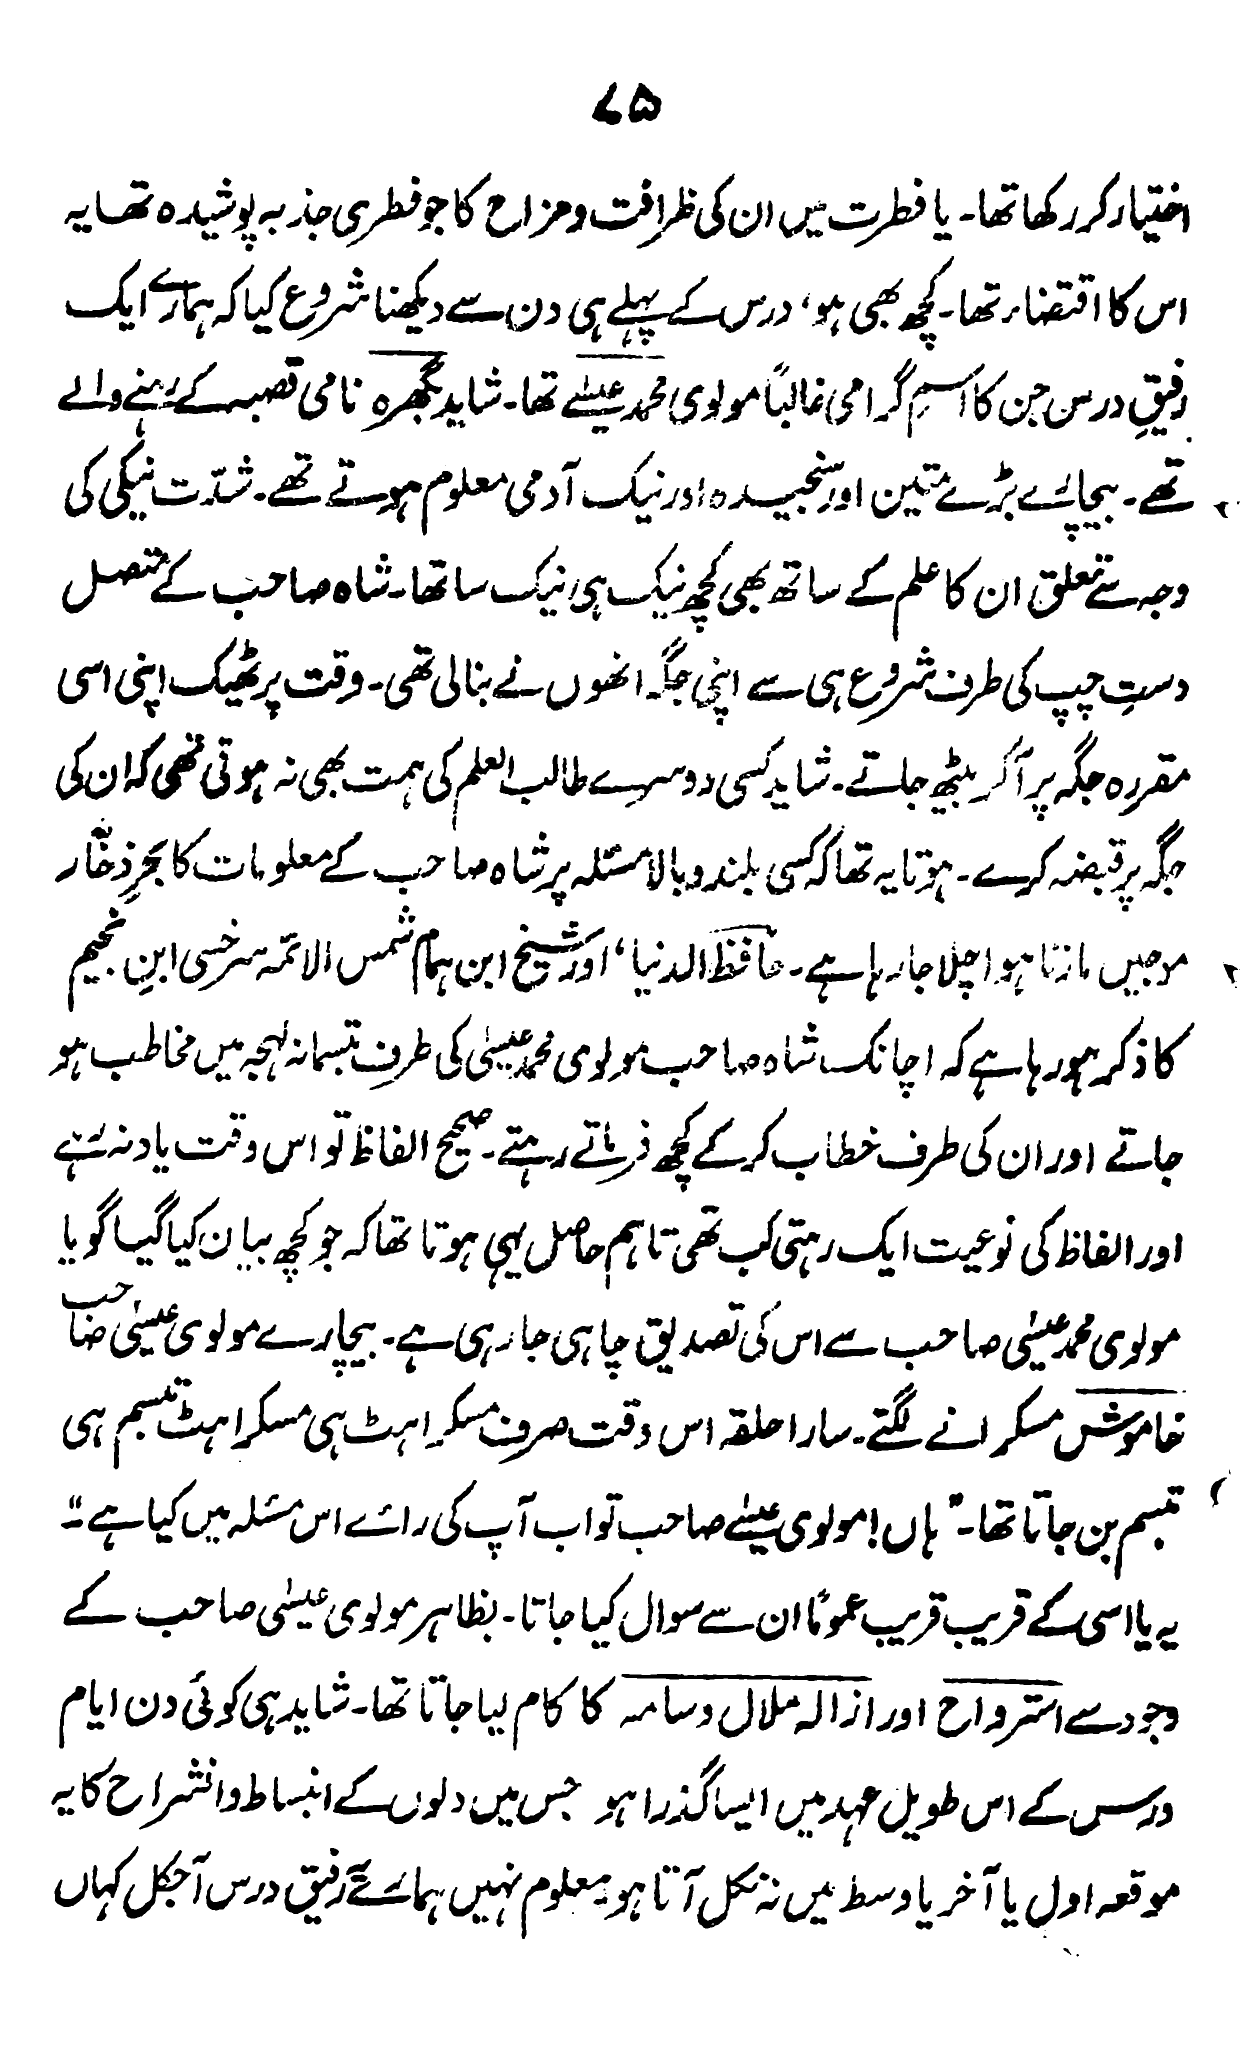 ۷۵
اختیار کر رکھا تھا۔ یا فطرت میں ان کی ظرافت و مزاح کا جو فطری جذبہ پوشیدہ تھا یہ
اس کا اقتضاء تھا۔ کچھ بھی ہو، درس کے پہلے ہی دن سے دیکھنا شروع کیا کہ ہمارے ایک
رفیقِ درس جن کا اسمِ گرامی غالباً مولوی محمد عیسٰے تھا۔ شاید بگھرہ نامی قصبہ کے رہنے والے
تھے۔ بیچارے بڑے متین اور سنجیدہ اور نیک آدمی معلوم ہوتے تھے۔ شدّت نیکی کی
وجہ سے تعلق ان کا علم کے ساتھ بھی کچھ نیک ہی نیک سا تھا۔ شاہ صاحب کے متصل
دستِ چپ کی طرف شروع ہی سے اپنی جگہ انھوں نے بنالی تھی۔ وقت پر ٹھیک اپنی اسی
مقررہ جگہ پر آ کر بیٹھ جاتے۔ شاید کسی دوسرے طالب العلم کی ہمت بھی نہ ہوتی تھی کہ ان کی
جگہ پر قبضہ کرے۔ ہوتا یہ تھا کہ کسی بلند و بالا مسئلہ پر شاہ صاحب کے معلومات کا بحرِ ذخّار
موجیں مارتا ہوا چلا جا رہا ہے۔ حافظ الدنیا، اور شیخ ابن ہمام شمس الائمہ سرخسی ابنِ نجیم
کا ذکر ہو رہا ہے کہ اچانک شاہ صاحب مولوی محمد عیسٰی کی طرف تبسمانہ لہجہ میں مخاطب ہو
جاتے اور ان کی طرف خطاب کر کے کچھ فرماتے رہتے۔ صحیح الفاظ تو اس وقت یاد نہ رہے
اور الفاظ کی نوعیت ایک رہتی کب تھی تاہم حاصل یہی ہوتا تھا کہ جو کچھ بیان کیا گیا گویا
مولوی محمد عیسٰی صاحب سے اس کی تصدیق چاہی جا رہی ہے۔ بیچارے مولوی عیسٰی صاحب
خاموش مسکرانے لگتے۔ سارا حلقہ اس وقت صرف مسکراہٹ ہی مسکراہٹ تبسم ہی
تبسم بن جاتا تھا۔ "ہاں! مولوی عیسٰے صاحب تو اب آپ کی رائے اس مسئلہ میں کیا ہے۔"
یہ یا اسی کے قریب قریب عموماً ان سے سوال کیا جاتا۔ بظاہر مولوی عیسٰی صاحب کے
وجود سے استرواح اور ازالہ ملال و سامہ کا کام لیا جاتا تھا۔ شاید ہی کوئی دن ایام
درس کے اس طویل عہد میں ایسا گذرا ہو جس میں دلوں کے انبساط و انشراح کا یہ
موقعہ اول یا آخر یا وسط میں نہ نکل آتا ہو۔ معلوم نہیں ہمارے رفیق درس آجکل کہاں